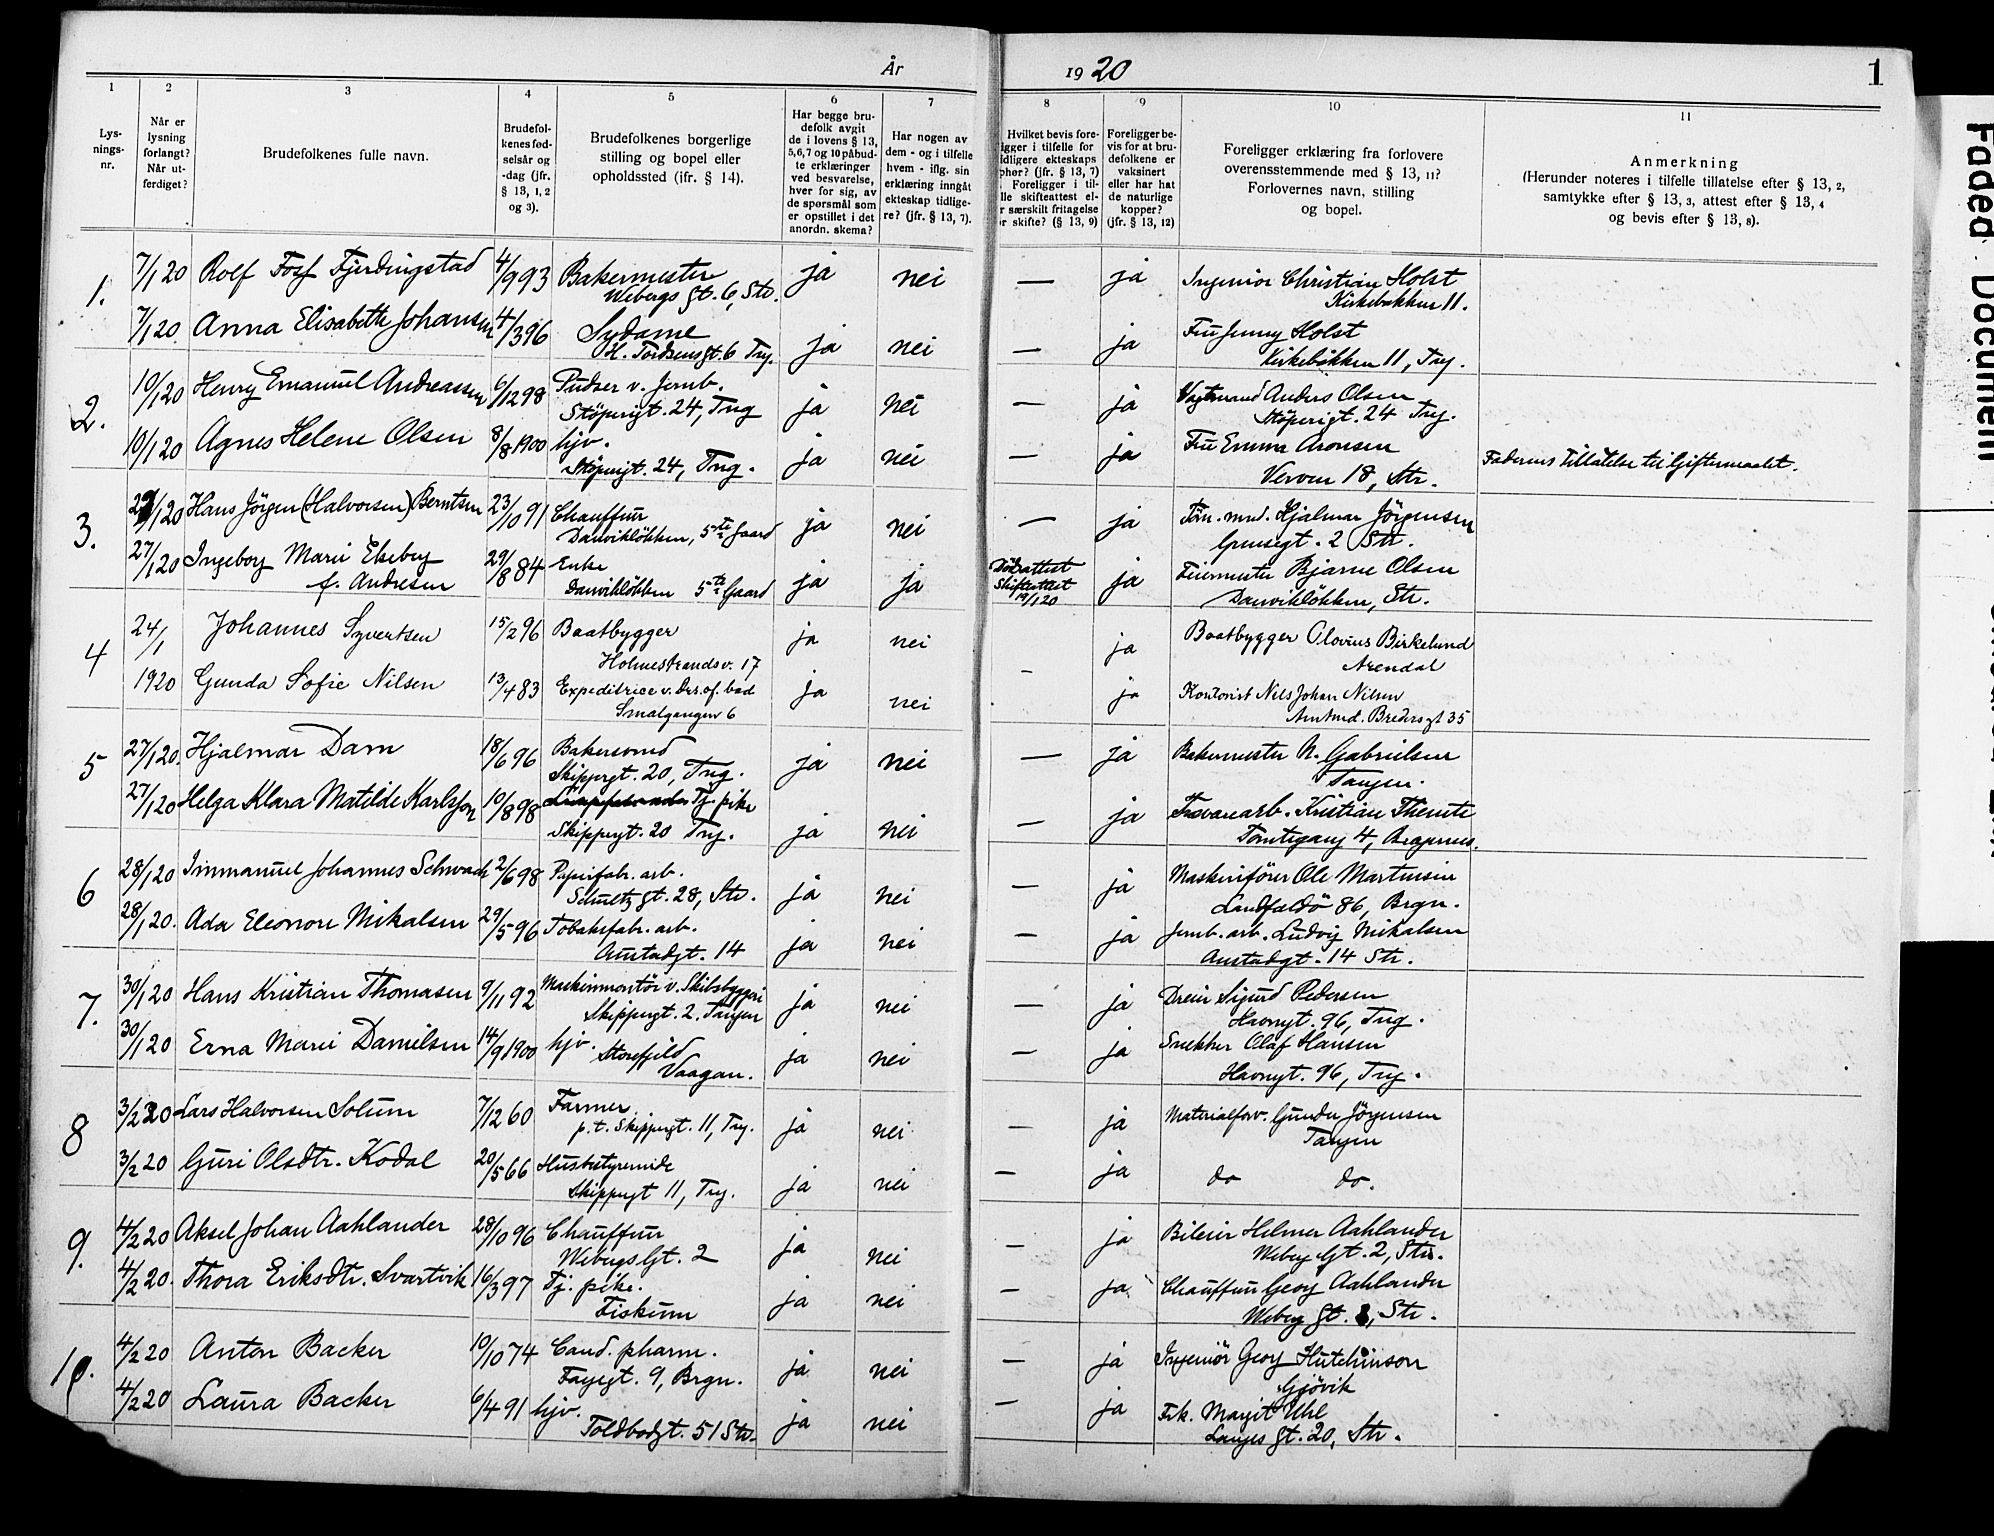 År 1920
1
1 2 3 4 5 6 7 8 9 10 11
Lys-
nings-
nr.
Når er
lysning
forlangt?
Når ut-
ferdiget?
Brudefolkenes fulle navn.
Brudefol-
kenes fød-
selsår og
-dag (jfr.
§ 13, 1, 2
og 3).
Brudefolkenes borgerlige
stilling og bopel eller
opholdssted (ifr. § 14).
Har begge bru-
defolk avgit
de i lovens § 13,
5,6,7 og 10 påbud-
te erklæringer
ved besvarelse,
hver for sig, av
de spørsmål som
er opstillet i det
anordn. skema?
Har nogen av
dem - og i tilfelle
hvem - iflg. sin
erklæring inngått
ekteskap tidlige-
re? (jfr. § 13, 7).
Hvilket bevis fore-
igger i tilfelle for
idligere ekteskaps
phør? (jfr. § 13, 7)
Foreligger i til-
lle skifteattest el-
r særskilt fritagelse
r skifte? (§ 13, 9)
Foreligger be-
vis for at bru-
defolkene er
vaksinert
eller har hat
de naturlige
kopper?
(jfr. § 13, 12)
Foreligger erklæring fra forlovere
overensstemmende med § 13, 11?
Forlovernes navn, stilling
og bopel.
Anmerkning
(Herunder noteres i tilfelle tillatelse efter § 13, 2,
samtykke efter § 13, 3, attest efter § 13, 4
og bevis efter § 13, 8).
1. 7/1 20 Rolf Fjerdingstad 4/9 93 Bakermester ja nei — ja Ingeniör Christian Holst
Webergs gt. 6, Str. Kirkebakken 11.
7/1 20 Anna Elisabeth Johansen 4/3 96 Sydame ja nei — ja Fru Jenny Holst
H. Tordsensgt. 6 Tng. Kirkebakken 11, Tng.
2. 10/1 20 Henry Emanuel Andreassen 6/12 98 Pudser v. Jernb. ja nei — ja Vagtmand Anders Olsen
Stöperigt. 24, Tng Stöperigt. 24 Tng.
10/1 20 Agnes Helene Olsen 8/8 1900 hjv. ja nei — ja Fru Emma Aronsen
Stöperigt. 24, Tng. Verven 18, Str. Faderens Tillatelse til Giftermaalet.
3. /1 20 Hans Jörgen (Halvorsen) Berntsen 23/10 91 Chauffeur ja nei — ja Töm. md. Hjalmar Jörgensen
Danviklökken, 5te Gaard Grensegt. 2 Str.
27/1 20 Ingeborg Marie Ekeberg 29/8 84 Enke ja ja Dödsattest ja Feiermester Bjarne Olsen
f. Andresen Danviklökken 5te Gaard Skifteattest 19/1 20 Danviklökken, Str.
4 24/1 Johannes Syvertsen 15/2 96 Baatbygger ja nei ja Baatbygger Olovius Birkelund
Holmestrandsv. 17 Arendal
1920 Gunda Sofie Nilsen 13/4 83 Expeditrice v. Drs. of. bad ja nei - ja Kontorist Nils Johan Nilsen
Smalgangen 6 Amtmd. Bredersgt 35
5 27/1 20. Hjalmar Dam 18/6 96 Bakersvend ja nei — ja Bakermester N. Gabrielsen
Skippergt. 20, Tng. Tangen.
27/1 20 Helga Klara Matilde Karlsson 10/8 98 Tj. pike ja nei — ja Trævarearb. Kristian
Skippergt. 20 Tng. Tomtegang 4, Bragernes.
6 28/1 20 Immanuel Johannes Schwach 2/6 98 Papirfabr. arb. ja nei — ja Maskinförer Ole Martinsen
Schultz gt. 28, Str. Landfaldö 86, Brgn.
28/1 20. Ada Eleonore Mikalsen 29/5 96 Tobaksfabr. arb. ja nei — ja Jernb. arb. Ludvig Mikalsen
Austadgt. 14 Austadgt. 14 Str.
7. 30/1 20 Hans Kristian Thomasen 9/11 92 Maskinmontör v. Skibsbyggeri ja nei — ja Dreier Sigurd Pedersen
Skippergt. 2. Tangen Havnegt. 96, Tng.
30/1 20 Erna Marie Danielsen 14/9 1900 hjv. ja nei — ja Snekker Olaf Hansen
Storefjeld Vaagan. Havnegt. 96, Tng.
8 3/2 20 Lars Halvorsen Solum 7/12 60 Farmer ja nei — ja Materialforv. Gunder Jörgensen
p.t. Skippergt. 11, Tng. Tangen
3/2 20 Guri Olsdtr. Kodal 20/5 66 Husbestyrerinde ja nei — ja do do.
Skippergt 11, Tng.
9. 4/2 20 Aksel Johan Aahlander 28/10 96 Chauffeur ja nei — ja Bileier Helmer Aahlander
Webergs Gt. 2 Weberg Gt. 2, Str.
4/2 20. Thora Eriksdtr. Svartvik 16/3 97 Tj. pike. ja nei — ja Chauffeur Georg Aahlander
Fiskum Weberg gt. , Str.
10. 4/2 20 Anton Backer 10/10 74 Cand. pharm. ja nei — ja Ingeniör Georg Hutchinson
Fayegt. 9, Brgn. Gjövik
4/2 20 Laura Backer 6/4 91 hjv. ja nei — ja Frk. Margit Uhl
Toldbodgt. 51 Str. Langes gt. 20, Str.
Faded Document